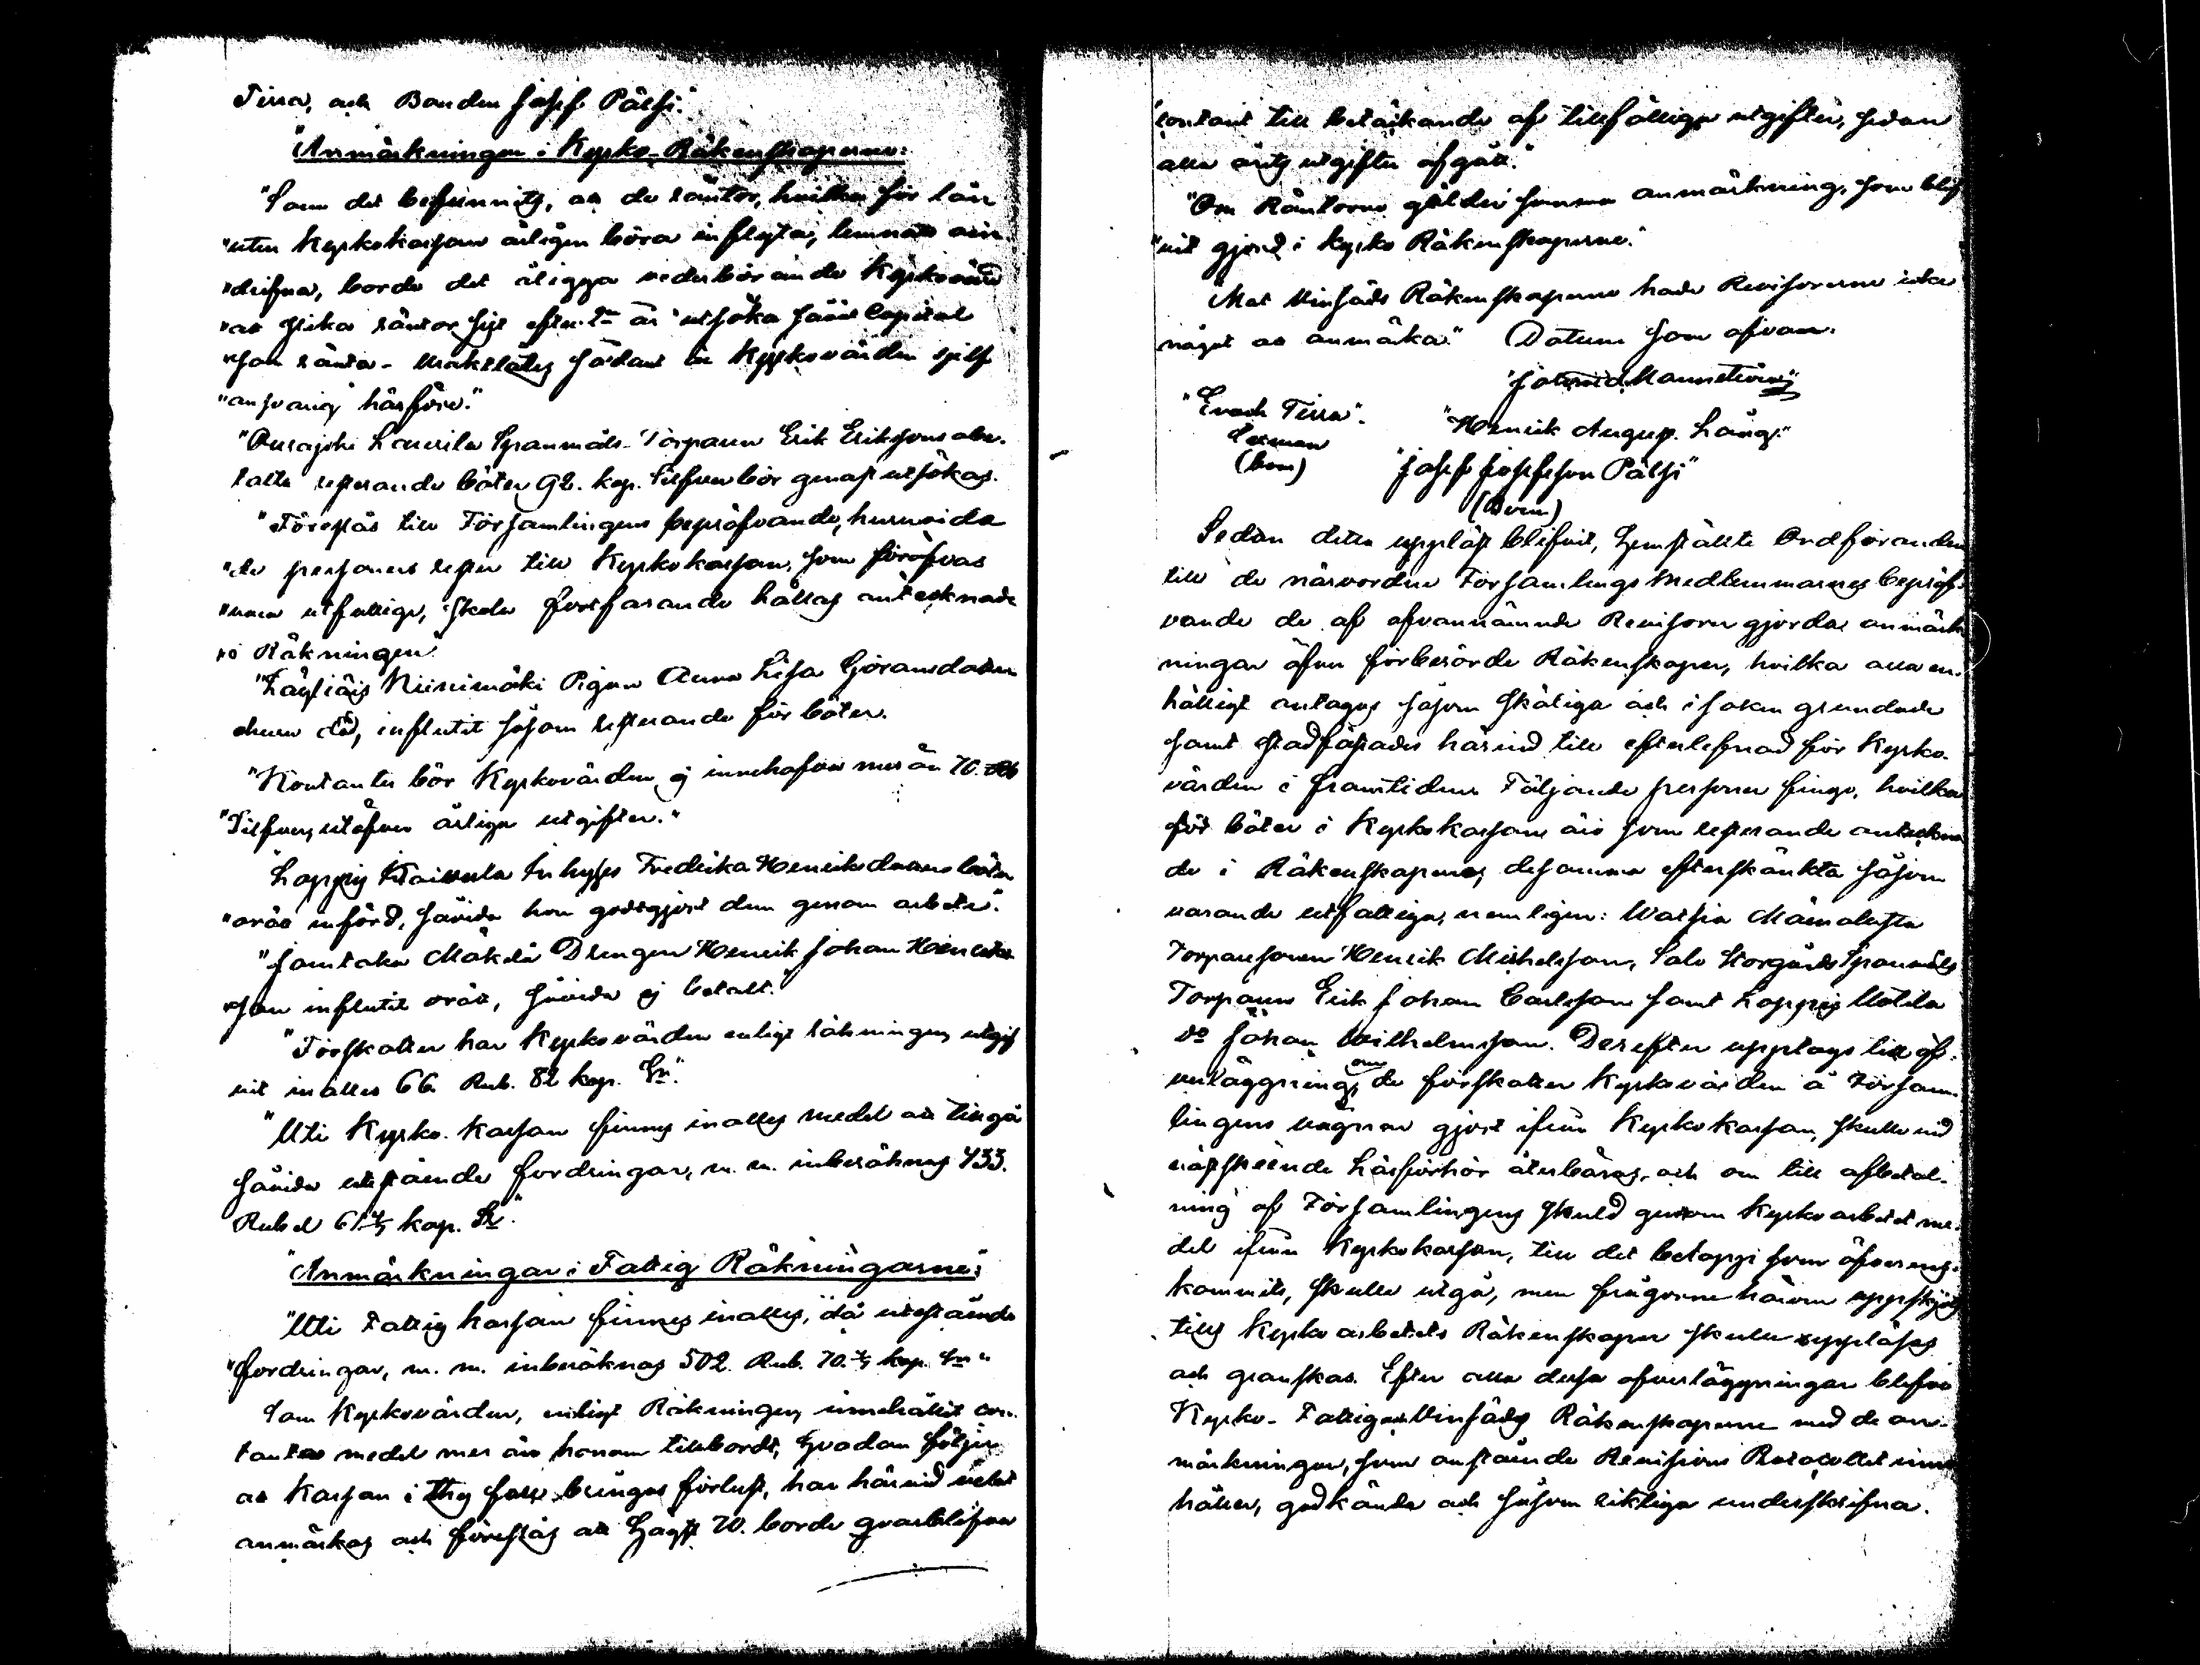 Tirra, och Bonden Josef Pälsi."
"Anmärkningar i Kyrko-Räkenskaperne:
"Som det befunnits, att de räntor, hvilka för lån
"utur Kyrkokassan årligen böra inflyta, lemnats oin-
"drifna, borde det åligga vederbörande Kyrkovärd
"att slika räntor sist efter 1= år utsöka såväl Capital
"som ränta - Uraktlåtes sådant är Kyrkovärden sjelf
"ansvarig härföre."
"Ourajoki Laurila Spanmåls-Torparen Erik Eriksons obe-
talte resterande böter 92. kop. Silfver bör genast utsökas.
"Föreslås till Församlingens bepröfvande, huruvida
"de personers rester till Kyrkokassan, som förefvas
"vara utfattige, skola fortfarande hållas antecknade
"i Räkningen."
Niinimäki Pigan Anna Lisa Göransdotter
influtit såsom resterande för böter.
"Kontanter bör Kyrkovärden ej innehafva mer än 70. Rb
"Silfver, utöfver årliga utgifter."
Loppis Inhyses Fredrika Henriksdotters böter
"orätt införd, såvida hon godtgjort dem genom arbete."
"Jantaka Mäkelä Drengen Henrik Johan Henriks-
"son influtit orätt, såvida ej betalt."
"Förskotter har Kyrkovärden enligt räkningen utgif-
vit inalles 66 Rub. 82 kop. Sr."
"Uti Kyrko-kassan finnes inalles medel att tillgå
såvida utestående fordringar, m. m. inberäknas 433.
Rubel 61 4/7 kop. Sr."
"Anmärkningar i Fattig Räkningarne:
"Uti Fattig kassan finnes inalles, då utestående
"fordringar, m. m. inberäknas 502. Rub. 70. kop. Sr "
Som Kyrkovärden, enligt Räkningen, innehållit con-
tanta medel mer än honom tillbordt, hvadan följer
att Kassan i thy fall bringas förlust, har härvid
anmärkas och föreslås att högst 70. borde qvarblifva
"contant till betäckande af tillfälliga utgifter, sedan
alla årets utgifter afgått."
"Om Räntorne gäller samma anmärkning, som blif-
"vit gjord i Kyrko Räkenskaperne."
"Mot Vinsäds Räkenskaperne hade Revisorerne icke
något att anmärka." Datum som ofvan.
Mannström"
"Enoch Tirra". "Henrik August Lång."
(bom) "Josef Josefsson Pälsi"
(Bom)
Sedan detta uppläst blifvit, hemstälte Ordföranden
till de närvordne Församlings Medlemmarnes bepröf-
vande de af ofvannämnde Revisorer gjorda anmärk-
ningar öfver förberörde Räkenskaper, hvilka alla en-
hälligt antogos såsom skäliga och i saken grundade
samt stadfästades härvid till efterlefnad för Kyrko-
värden i framtiden. Följande personer fingo, hvilka
för böter i Kyrkokassan äro som resterande anteckna-
de i Räkenskaperne, desamma efterskänkta såsom
varande utfattiga, nemligen:
Torparesonen Henrik Michelsson, Salo Storgårds Spanmåls
Torparen Erik Johan Carlsson samt Loppis Uotila
do Johan Wilhelmsson. Derefter upptogs till öf-
verläggning, om de förskotter Kyrkovärden å Försam-
lingens vägnar gjort ifrån Kyrkokassan, skulle vid
nästskeende Läsförhör återbäras, och om till afbetal-
ning af Församlingens skuld genom Kyrkoarbetet me-
del ifrån Kyrkokassan, till det belopp som öfverens-
kommits, skulle utgå, men frågorne härom uppskjöts
tills Kyrko arbetets Räkenskaper skulle uppläsas
och granskas. Efter alla dessa öfverläggningar blefvo
Kyrko- Fattig och Vinsäds Räkenskaperne med de an-
märkningar, som anstående Revisions Protocollet inne-
håller, godkända och såsom riktiga underskrifna.